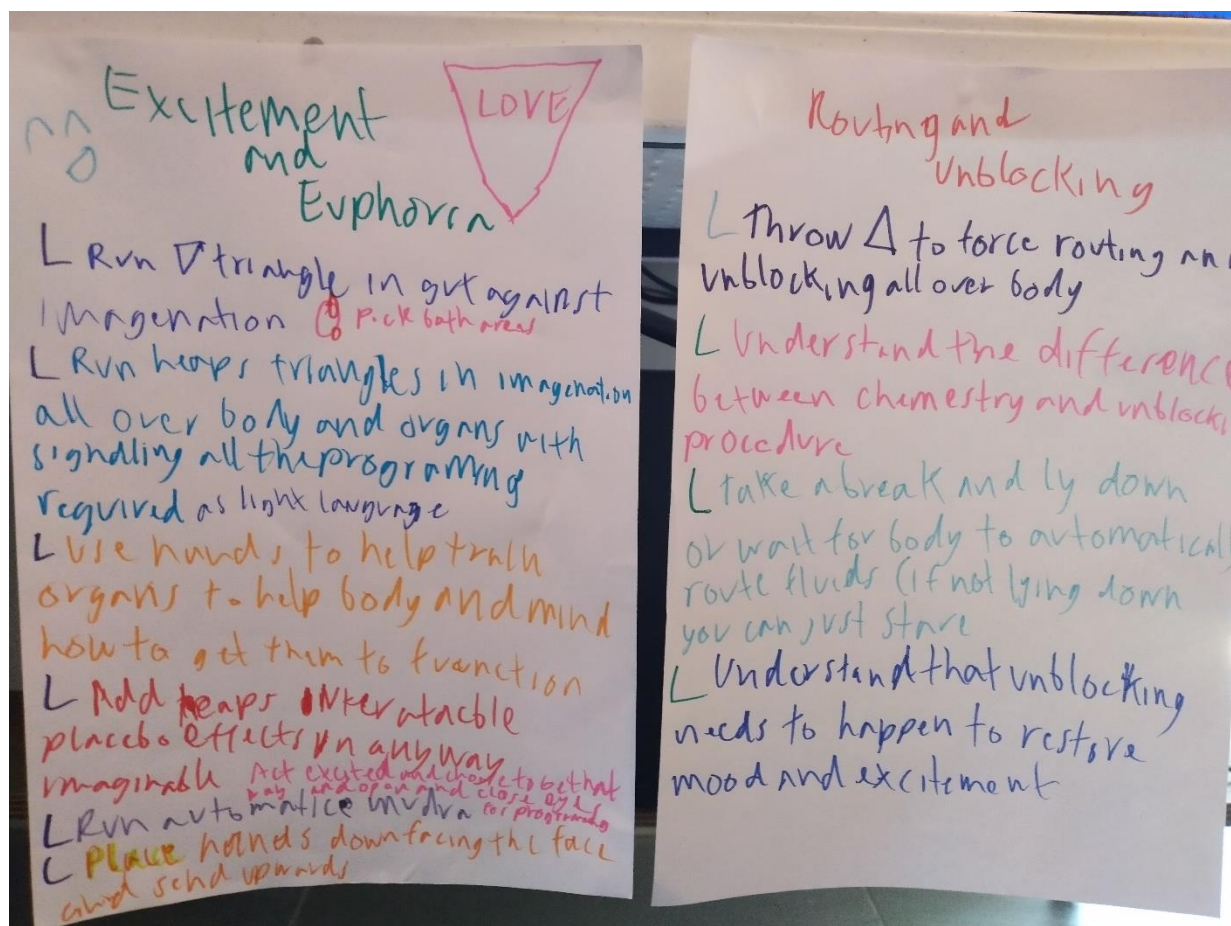 Excitement
and
Euphoria
LOVE
L Run ▽ triangle in gut against
imagenation Pick both areas
L Run heaps triangles in imagenation
all over body and organs with
signalling all the programing
required as light language
L Use hands to help train
organs to help body and mind
how to get them to function
L Add heaps
placebo effects in anyway
imaginable Act excited and choose to be that
way and open and close eyes
L Run automatice mudra for programing
L Place hands down facing the face
and send upwards
Routing and
Unblocking
L Throw △ to force routing an
unblocking all over body
L Understand the differenc
between chemestry and unblocki
procedure
L take a break and ly down
or wait for body to automatical
route fluids (if not lying down
you can just stare
L Understand that unblocking
needs to happen to restore
mood and excitement